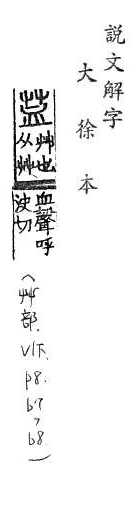 説文解字
大徐本
艸也
从艸
血聲呼
決切
(艸部. VI下. p8. b7, b8.)